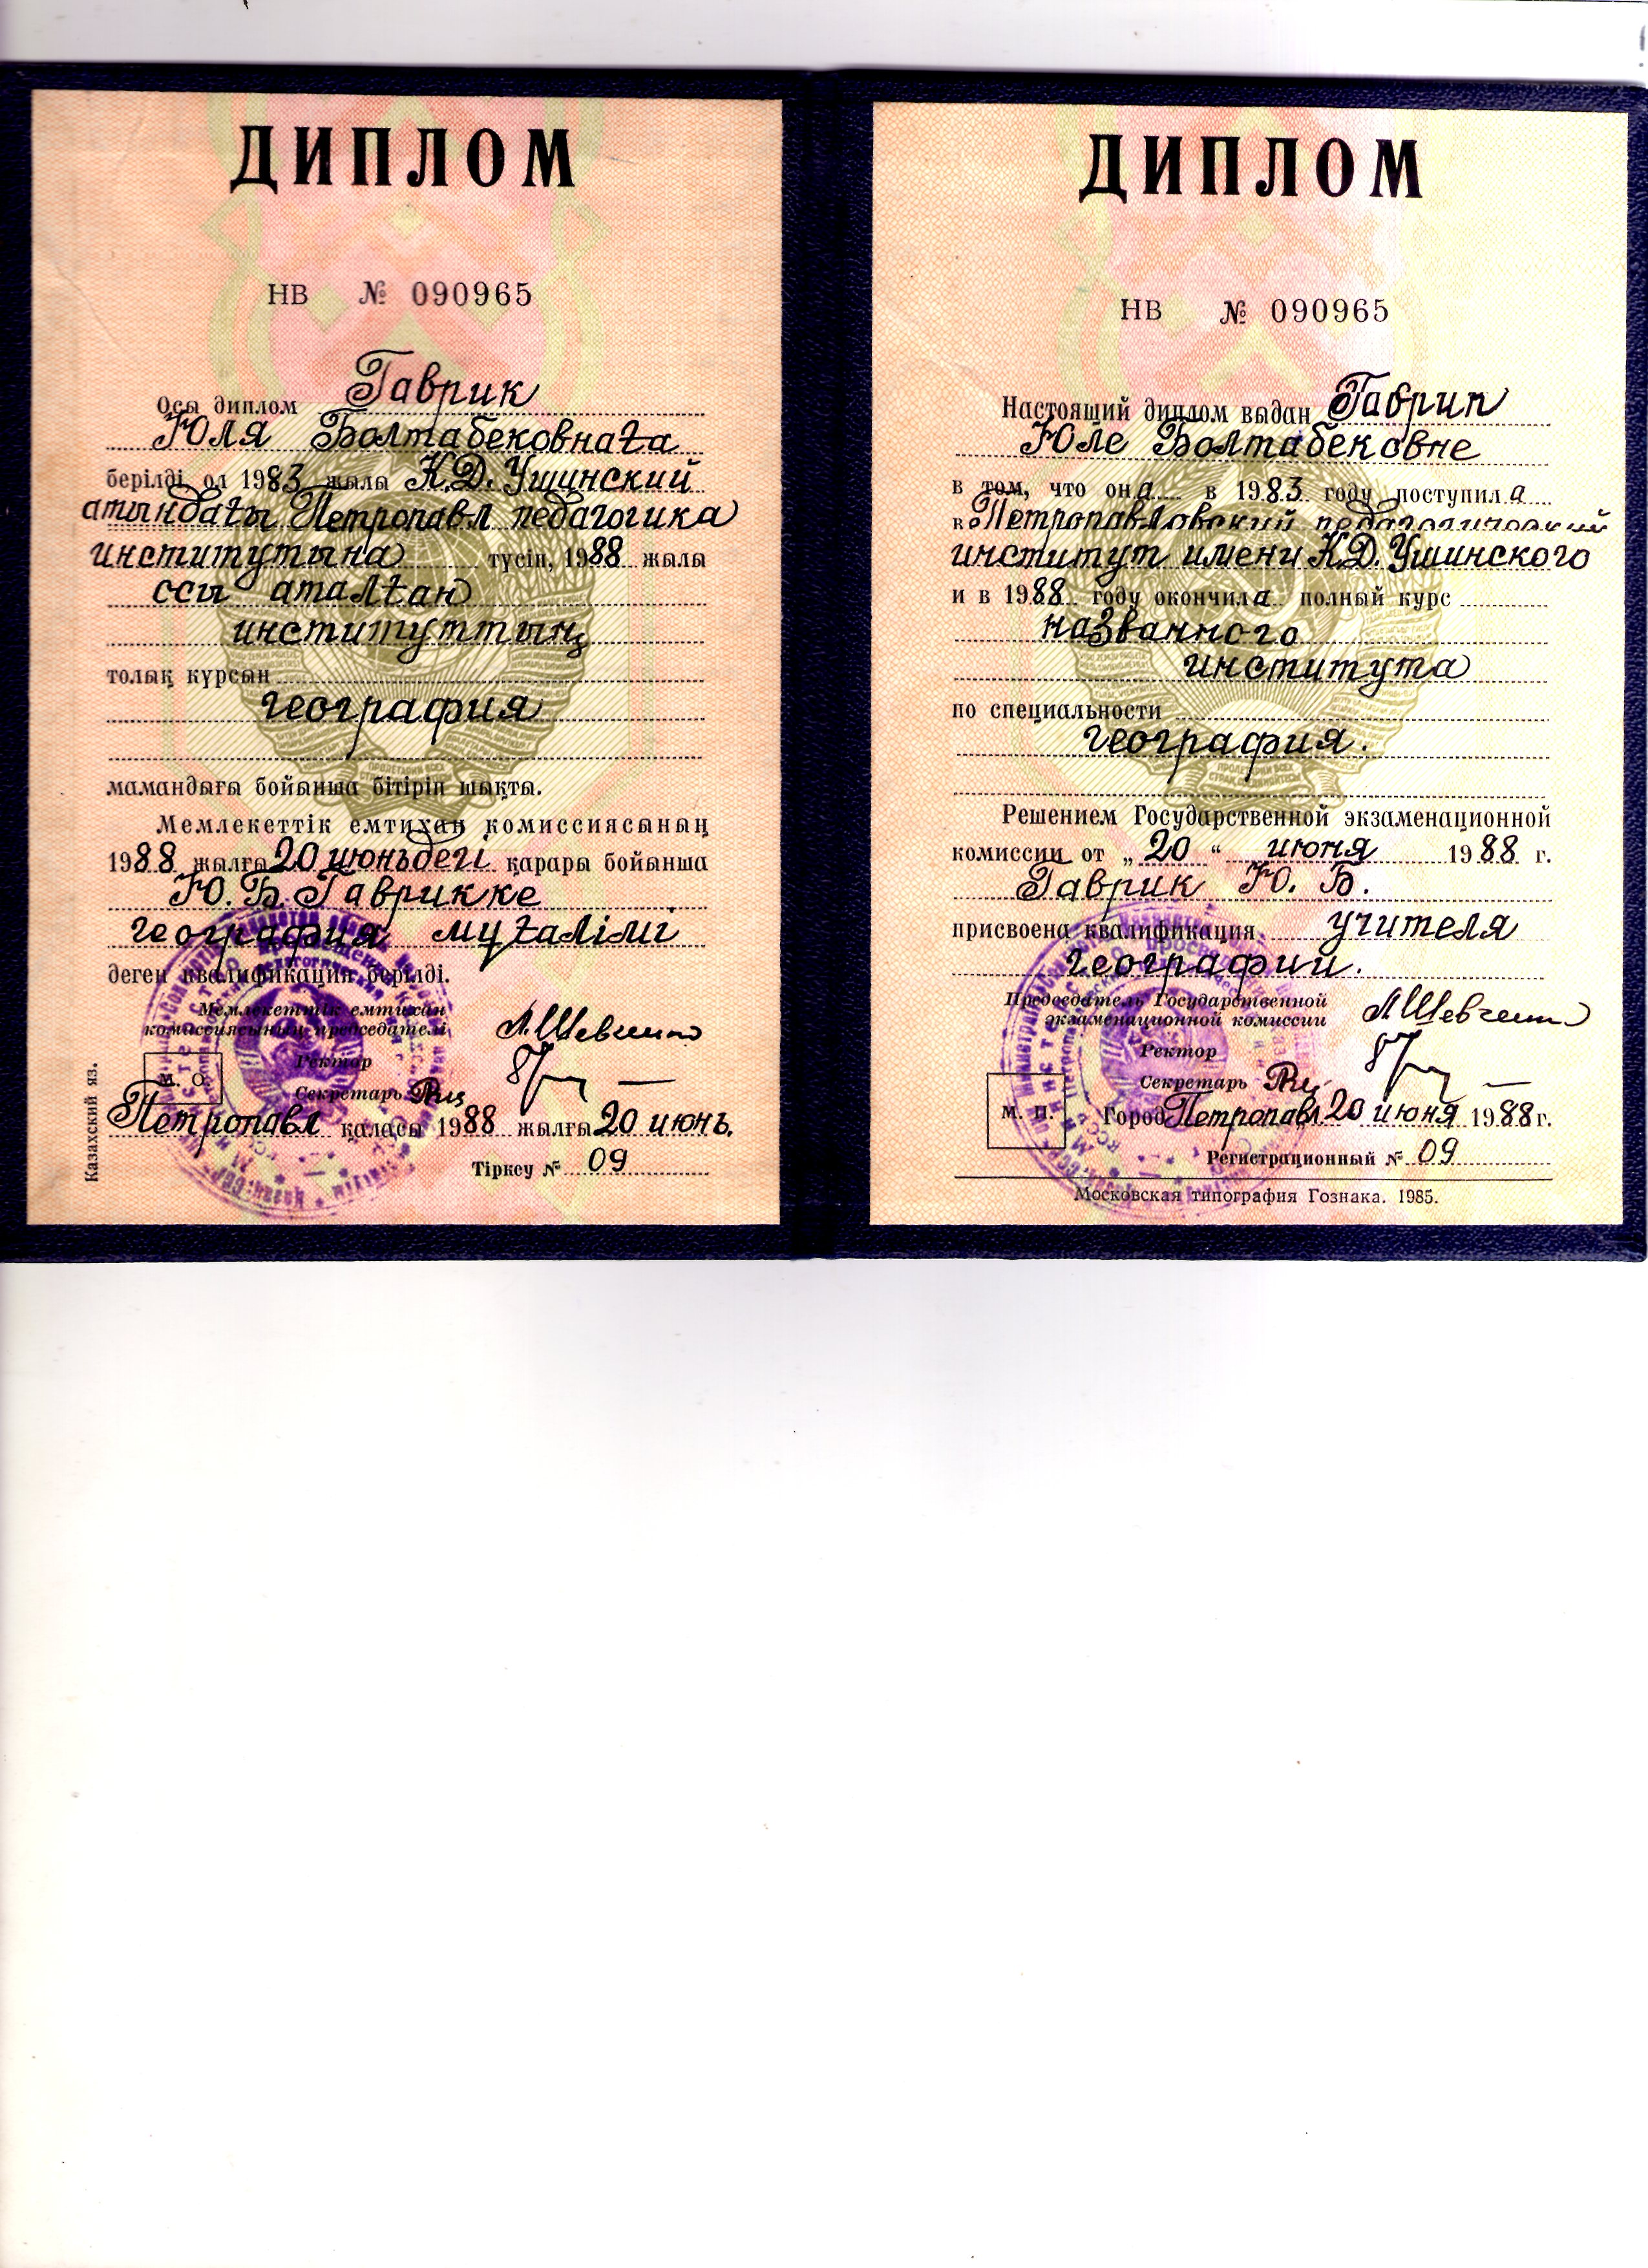 ДИПЛОМ
НВ № 090965
Осы диплом Гаврик
Юля Болтабековнаға
берілді ол 1983 жылы К.Д. Ушинский
атындағы Петропавл педагогика
институтына түсіп, 1988 жылы
осы аталған
институттың
толық курсын
география
мамандығы бойынша бітіріп шықты.
Мемлекеттік емтихан комиссиясының
1988 жылғы 20 июньдегі қарары бойынша
Ю. Б. Гаврикке
география мұғалімі
деген квалификация берілді.
Мемлекеттік емтихан
комиссиясының председателі
Ректор
М. О.
Секретарь
Петропавл қаласы 1988 жылғы 20 июнь.
Тіркеу № 09
Казахский яз.
ДИПЛОМ
НВ № 090965
Настоящий диплом выдан Гаврик
Юле Болтабековне
в том, что она в 1983 году поступила
в Петропавловский педагогический
институт имени К.Д. Ушинского
и в 1988 году окончила полный курс
названного
института
по специальности
география.
Решением Государственной экзаменационной
комиссии от „ 20 “ июня 1988 г.
Гаврик Ю. Б.
присвоена квалификация учителя
географии.
Председатель Государственной
экзаменационной комиссии
Ректор
Секретарь
М. П.
Город Петропавл 20 июня 1988 г.
Регистрационный № 09
Московская типография Гознака. 1985.